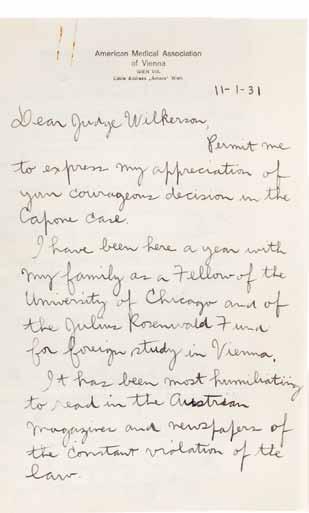 American Medical Association
of Vienna
WIEN VIII.
Cable Address „Amavie“ Wien.
11-1-31
Dear Judge Wilkerson,
Permit me
to express my appreciation of
your courageous decision in the
Capone case.
I have been here a year with
my family as a Fellow of the
University of Chicago and of
the Julius Rosenwald Fund
for foreign study in Vienna.
It has been most humiliating
to read in the Austrian
magazines and newspapers of
the constant violation of the
law.